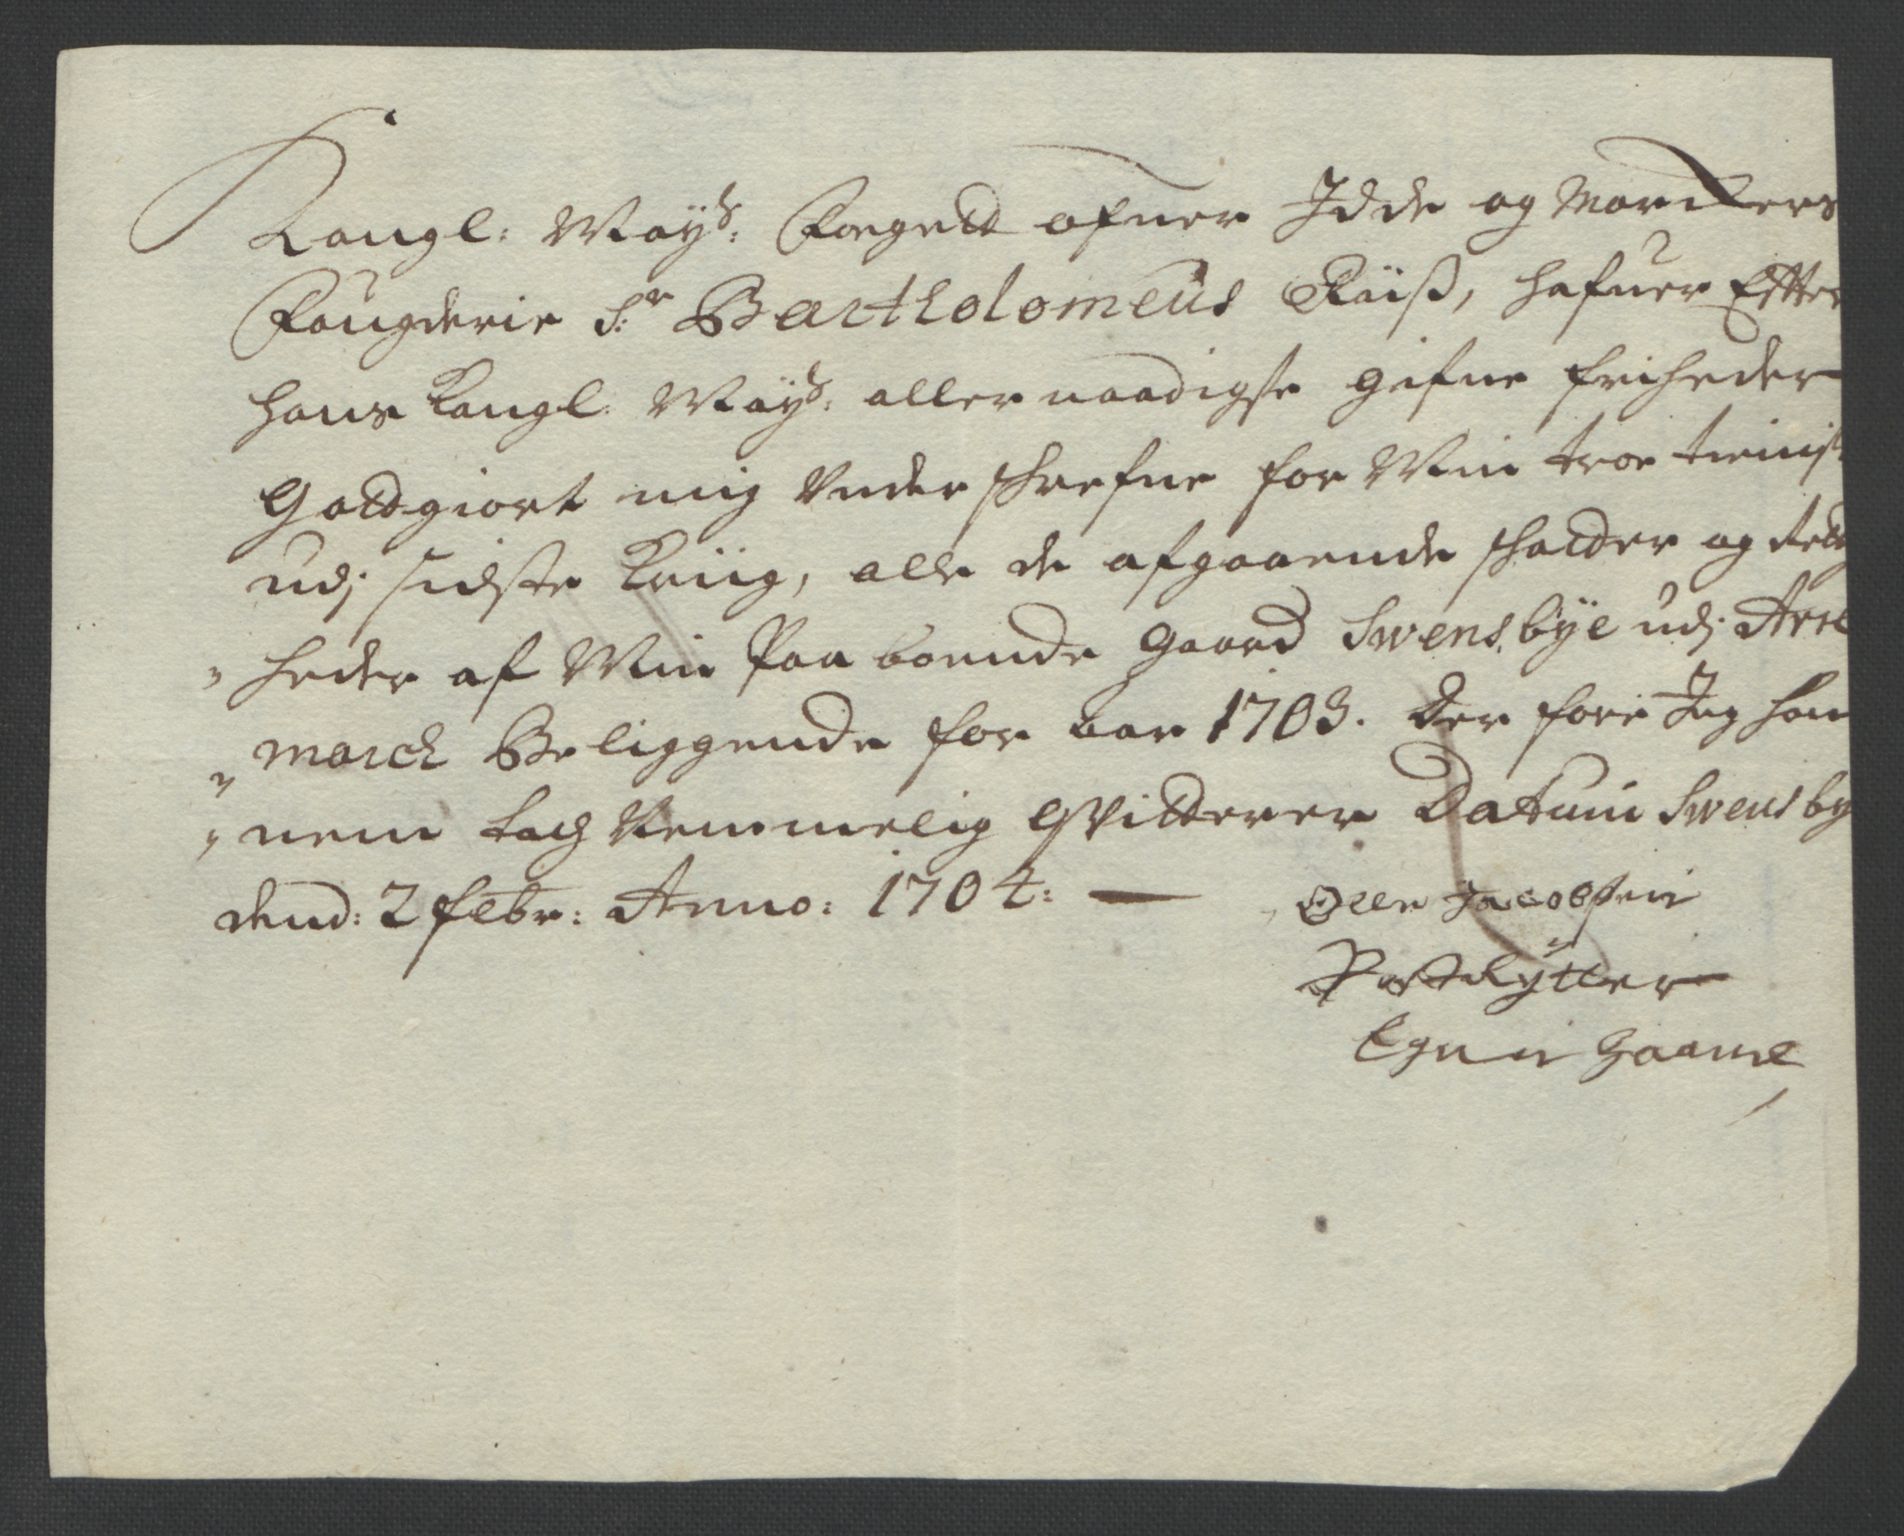 Kongl: Mayts: Fogett ofuer Idde og Marckers
Fougderie Sr Bartholomeus Räiß, hafuer Efter
hans Kongl: Mayts: aller naadigste gifne friheder
Gottgiort mig Under skrefne for Min troe tienist
udj sidste Kriig, alle de afgaaende skatter og Rettig
heder af Min Paa boende Gaard Swensbye udj Are
marck Beliggende for aar 1703. Der fore Jeg ham
nem tach Nemmelig Qvitterer Datum Swensby
dend: 2 febr: Anno: 1704:
Olle Jacobsen
Postrytter
Egen haand